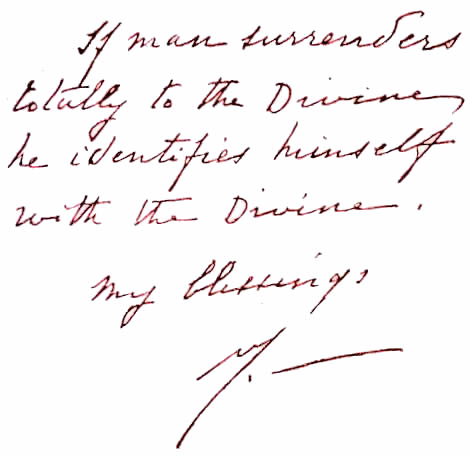 If man surrenders
totally to the Divine,
he identifies himself
with the Divine.
My blessings
M. —